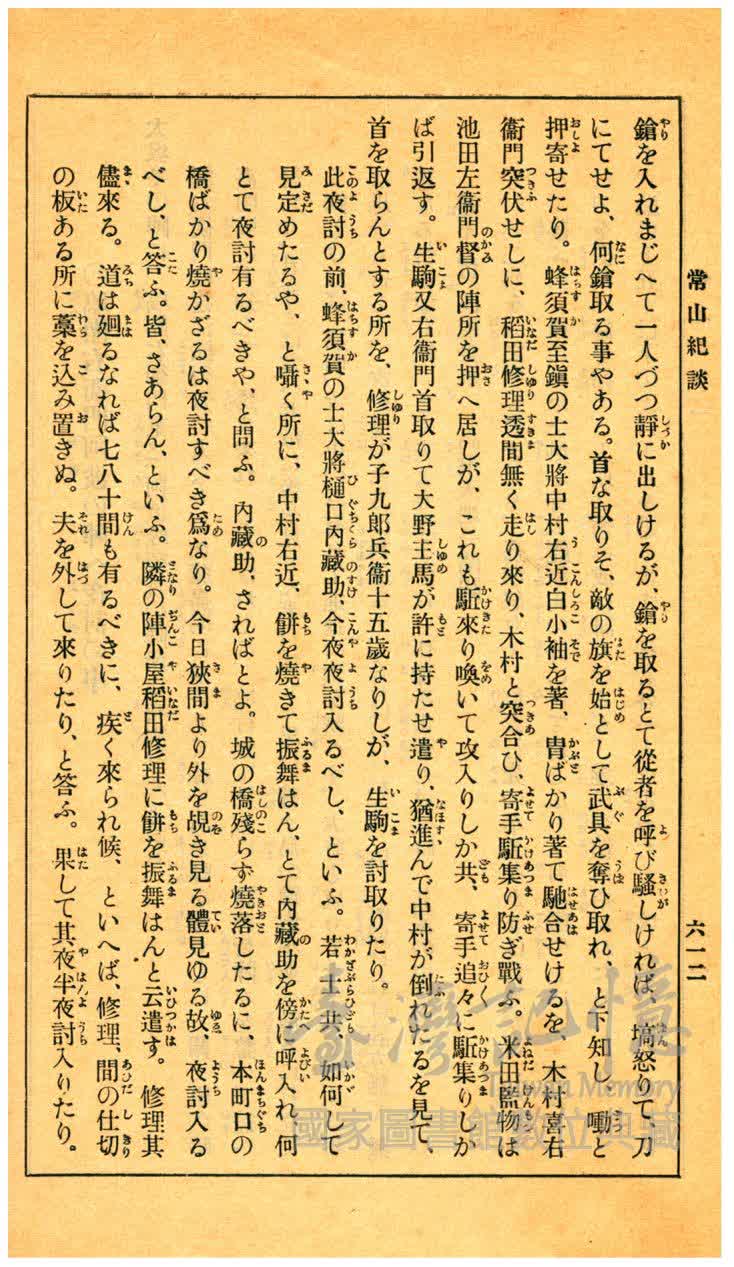 常山紀談
六一二
鎗を入れまじへて一人づつ靜に出しけるが、鎗を取るとて從者を呼び騷しければ、塙怒りて、刀
にてせよ、何鎗取る事やある。首な取りそ、敵の旗を始として武具を奪ひ取れ、と下知し、噇と
押寄せたり。蜂須賀至鎭の士大將中村右近白小袖を著、冑ばかり著て馳合せけるを、木村喜右
衞門突伏せしに、稻田修理透間無く走り來り、木村と突合ひ、寄手駈集り防ぎ戰ふ。米田監物は
池田左衞門督の陣所を押へ居しが、これも駈來り喚いて攻入りしか共、寄手追々に駈集りしか
ば引返す。生駒又右衞門首取りて大野主馬が許に持たせ遣り、猶進んで中村が倒れたるを見て、
首を取らんとする所を、修理が子九郎兵衞十五歲なりしが、生駒を討取りたり。
此夜討の前、蜂須賀の士大將樋口內藏助、今夜夜討入るべし、といふ。若士共、如何して
見定めたるや、と囁く所に、中村右近、餠を燒きて振舞はん、とて內藏助を傍に呼入れ、何
とて夜討有るべきや、と問ふ。內藏助、さればとよ。城の橋殘らず燒落したるに、本町口の
橋ばかり燒かざるは夜討すべき爲なり。今日狹間より外を覘き見る體見ゆる故、夜討入る
べし、と答ふ。皆、さあらん、といふ。隣の陣小屋稻田修理に餠を振舞はんと云遣す。修理其
儘來る。道は廻るなれば七八十間も有るべきに、疾く來られ候、といへば、修理、間の仕切
の板ある所に藁を込み置きぬ。夫を外して來りたり、と答ふ。果して其夜半夜討入りたり。
臺灣記憶
Taiwan Memory
國家圖書館數位典藏